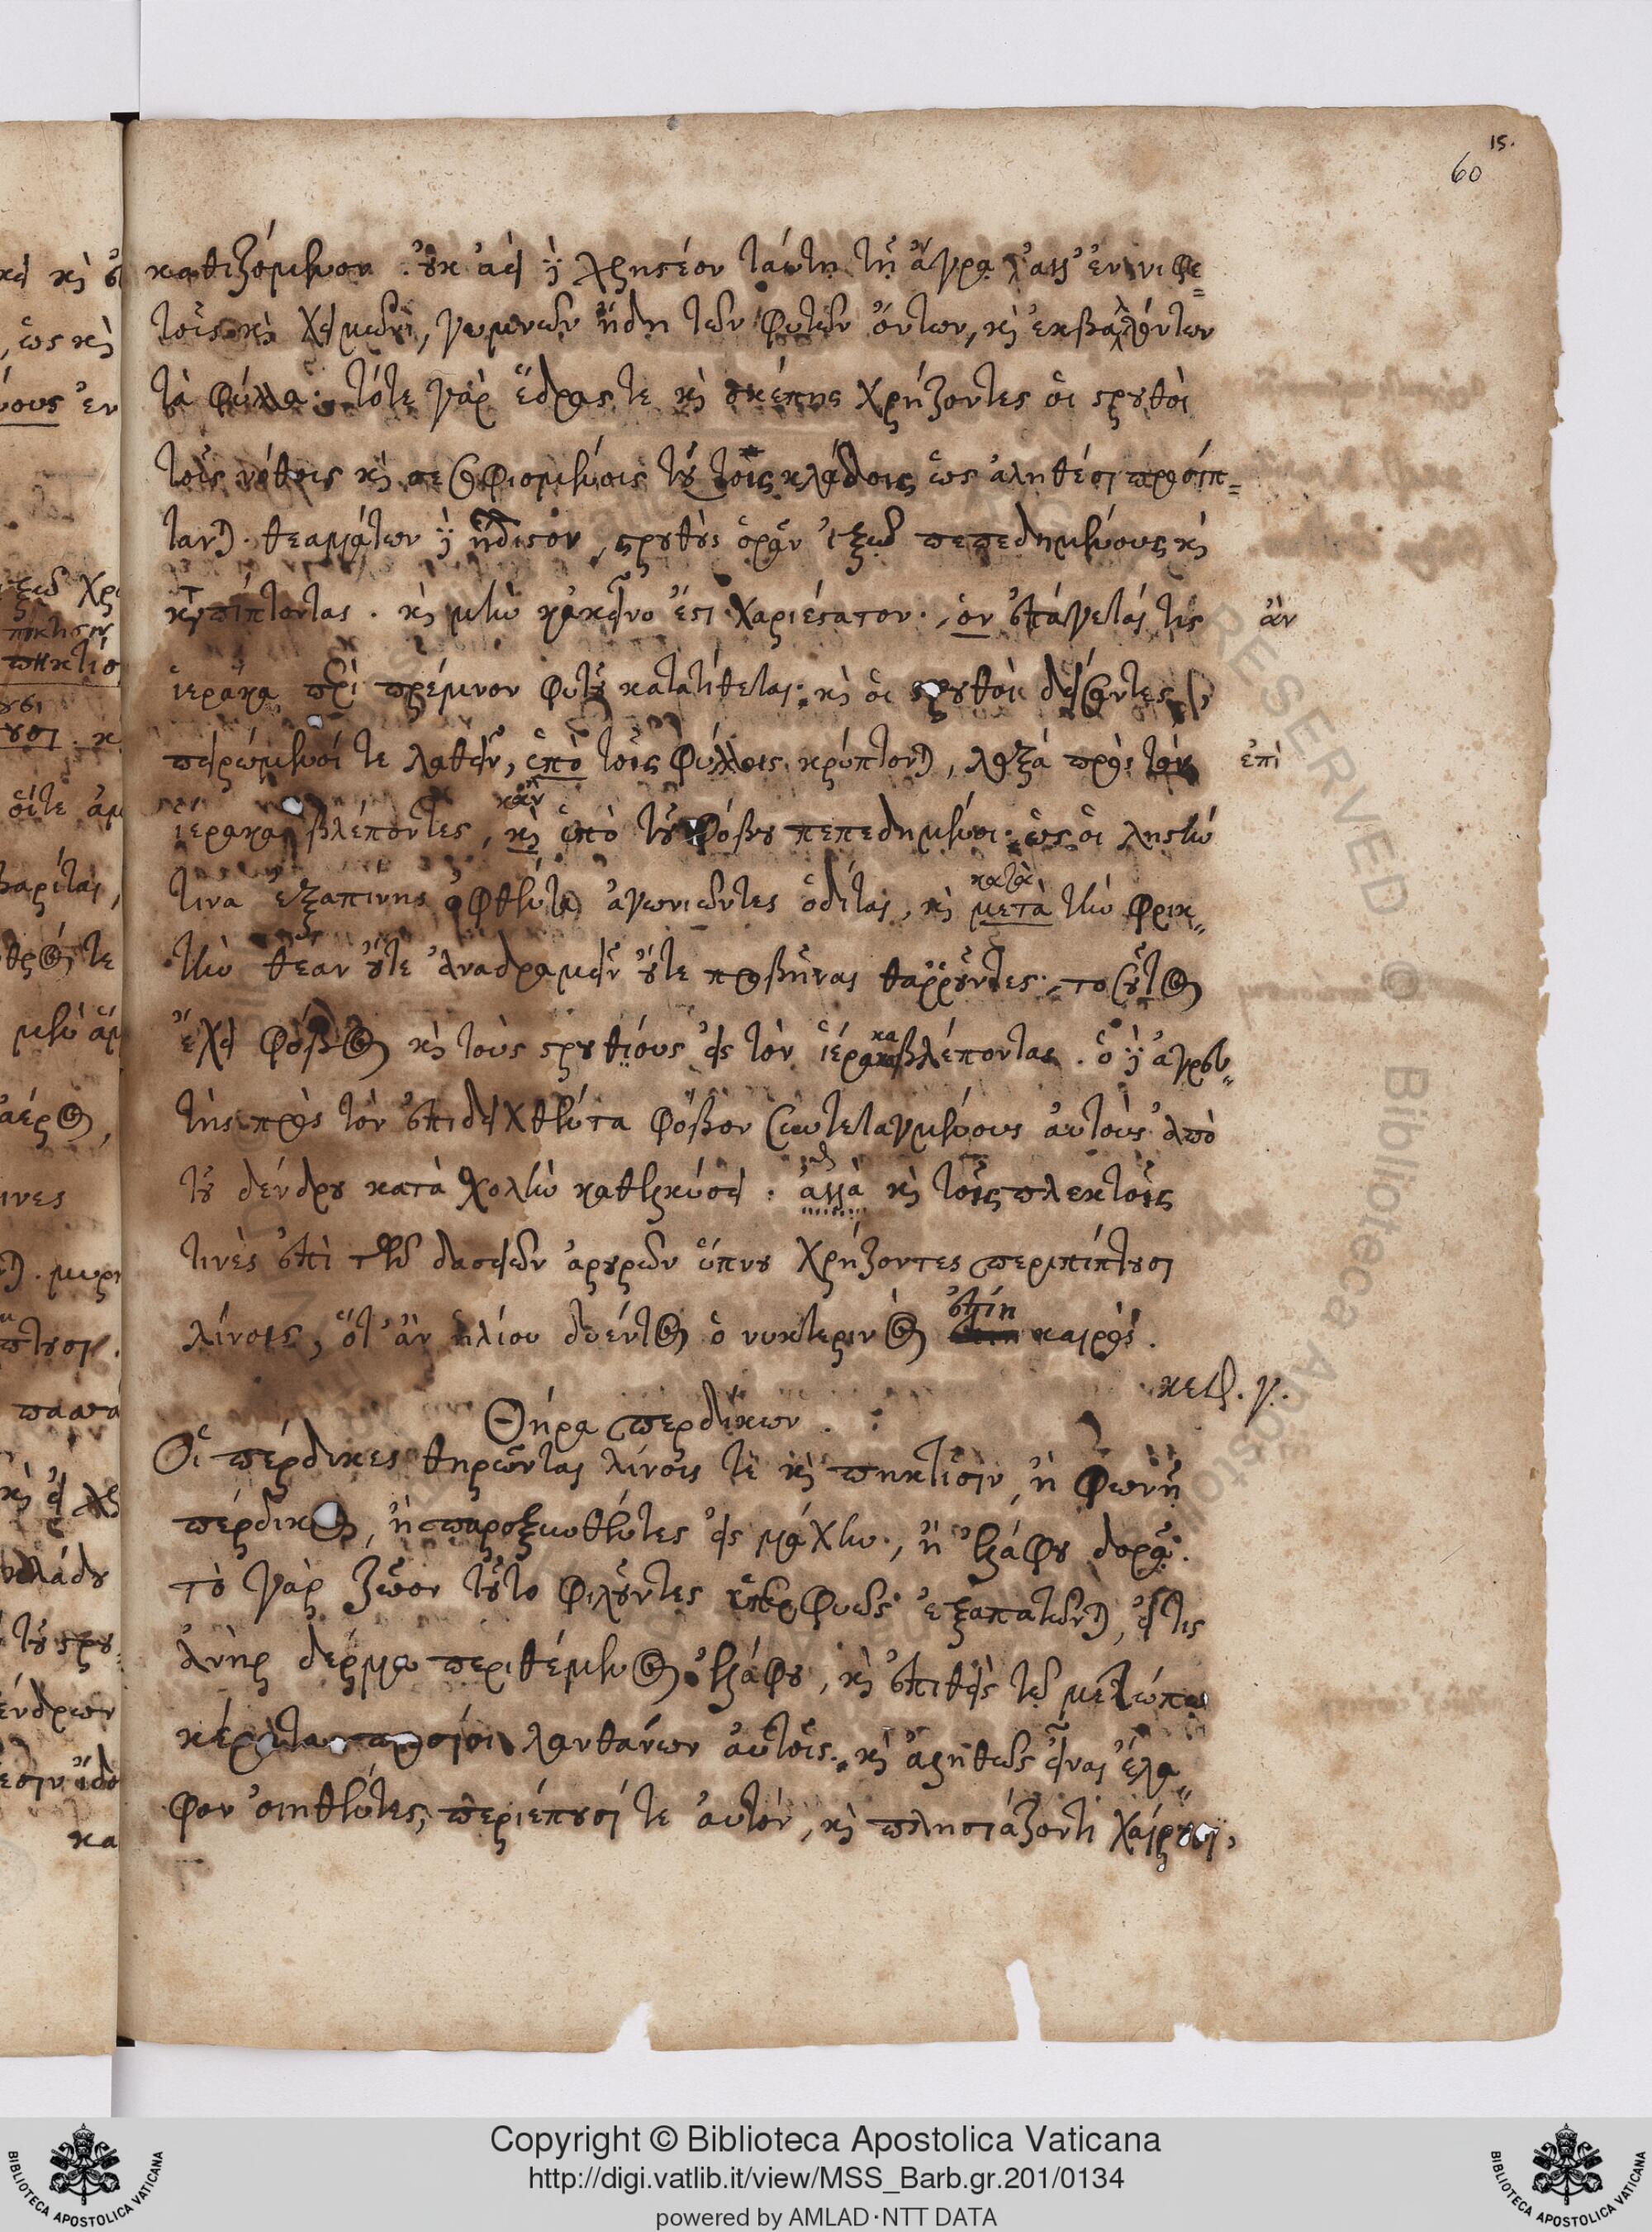 15.
60
καθιζόμενον. οὐκ ἀεὶ δὲ χρηστέον ταύτῃ τῇ ἄγρᾳ, ἀλλ' ἐν νιφε=
τοῖς καὶ χειμῶνι, γυμνῶν ἤδη τῶν φυτῶν ὄντων, καὶ ἐκβαλόντων
τὰ φύλλα. τότε γὰρ ἕδρας τε καὶ σκέπης χρήζοντες οἱ στρουθοὶ
τοῖς νόθοις καὶ σεσοφισμένοις τού τοῖς κλάδοις ὡς ἀληθέσι προσίπ=
τανται. θεαμάτων δὲ ἥδιστον, στρουθοὺς ὁρᾶν ἰξῷ πεπεδημένους καὶ
καταπίπτοντας. καὶ μὴν κἀκεῖνο ἔστι χαριέστατον. ὃν ἐπάγεταί τις ἂν
ἱέρακα, περὶ πρέμνον φυτοῦ κατατίθεται. καὶ οἱ στρουθοὶ δείσαντες,
πειρώμενοί τε λαθεῖν, ὑπὸ τοῖς φύλλοις κρύπτονται, λοξὰ πρὸς τὸν ἐπὶ
ἱέρακα βλέποντες, καὶ κἂν ὑπὸ τοῦ φόβου πεπεδημένοι. ὡς οἱ λῃστήν
τινα ἐξαπίνης ὀφθέντα ἀγωνιῶντες ὁδίται, καὶ μετὰ κατὰ τὴν φρικ=
τὴν θέαν οὔτε ἀναδραμεῖν οὔτε προβῆναι θαῤῥοῦντες. τοσοῦτος
ἔχει φόβος καὶ τοὺς στρουθίους εἰς τὸν ἱέρακα βλέποντας. ὁ δὲ ἀγρευ=
τὴς πρὸς τὸν ἐπιδειχθέντα φόβον συντεταγμένους αὐτοὺς ἀπὸ
τοῦ δένδρου κατὰ σχολὴν καθελκύσει. ἀλλὰ καὶ τοῖς πλεκτοῖς
τινὲς ἐπὶ τῶν δασειῶν ἀρουρῶν ὕπνου χρήζοντες περιπίπτουσι
λίνοις, ὅτ' ἂν ἡλίου δύοντος ὁ νυκτερινὸς ἐπίῃ καιρός.
κεφ. γ.
Θήρα περδίκων.
Οἱ πέρδικες θηρῶνται λίνοις τε καὶ πηκτίσιν, ἢ φωνῇ
πέρδικος, ἢ παροξυνθέντες εἰς μάχην, ἢ ἐλάφου δορᾷ.
τὸ γὰρ ζῶον τοῦτο φιλοῦντες ὑπερφυῶς ἐξαπατῶνται, εἴ τις
ἀνὴρ δέρμα περιθέμενος ἐλάφου, καὶ ἐπιθεὶς τῷ μετώπῳ
κέρατα προσίοι λανθάνων αὐτοῖς. καὶ ἀληθῶς εἶναι ἔλα=
φον οἰηθέντες, περιέπουσί τε αὐτὸν, καὶ πλησιάζοντι χαίρουσι,
Copyright © Biblioteca Apostolica Vaticana
http://digi.vatlib.it/view/MSS_Barb.gr.201/0134
powered by AMLAD·NTT DATA
BIBLIOTECA APOSTOLICA VATICANA
BIBLIOTECA APOSTOLICA VATICANA